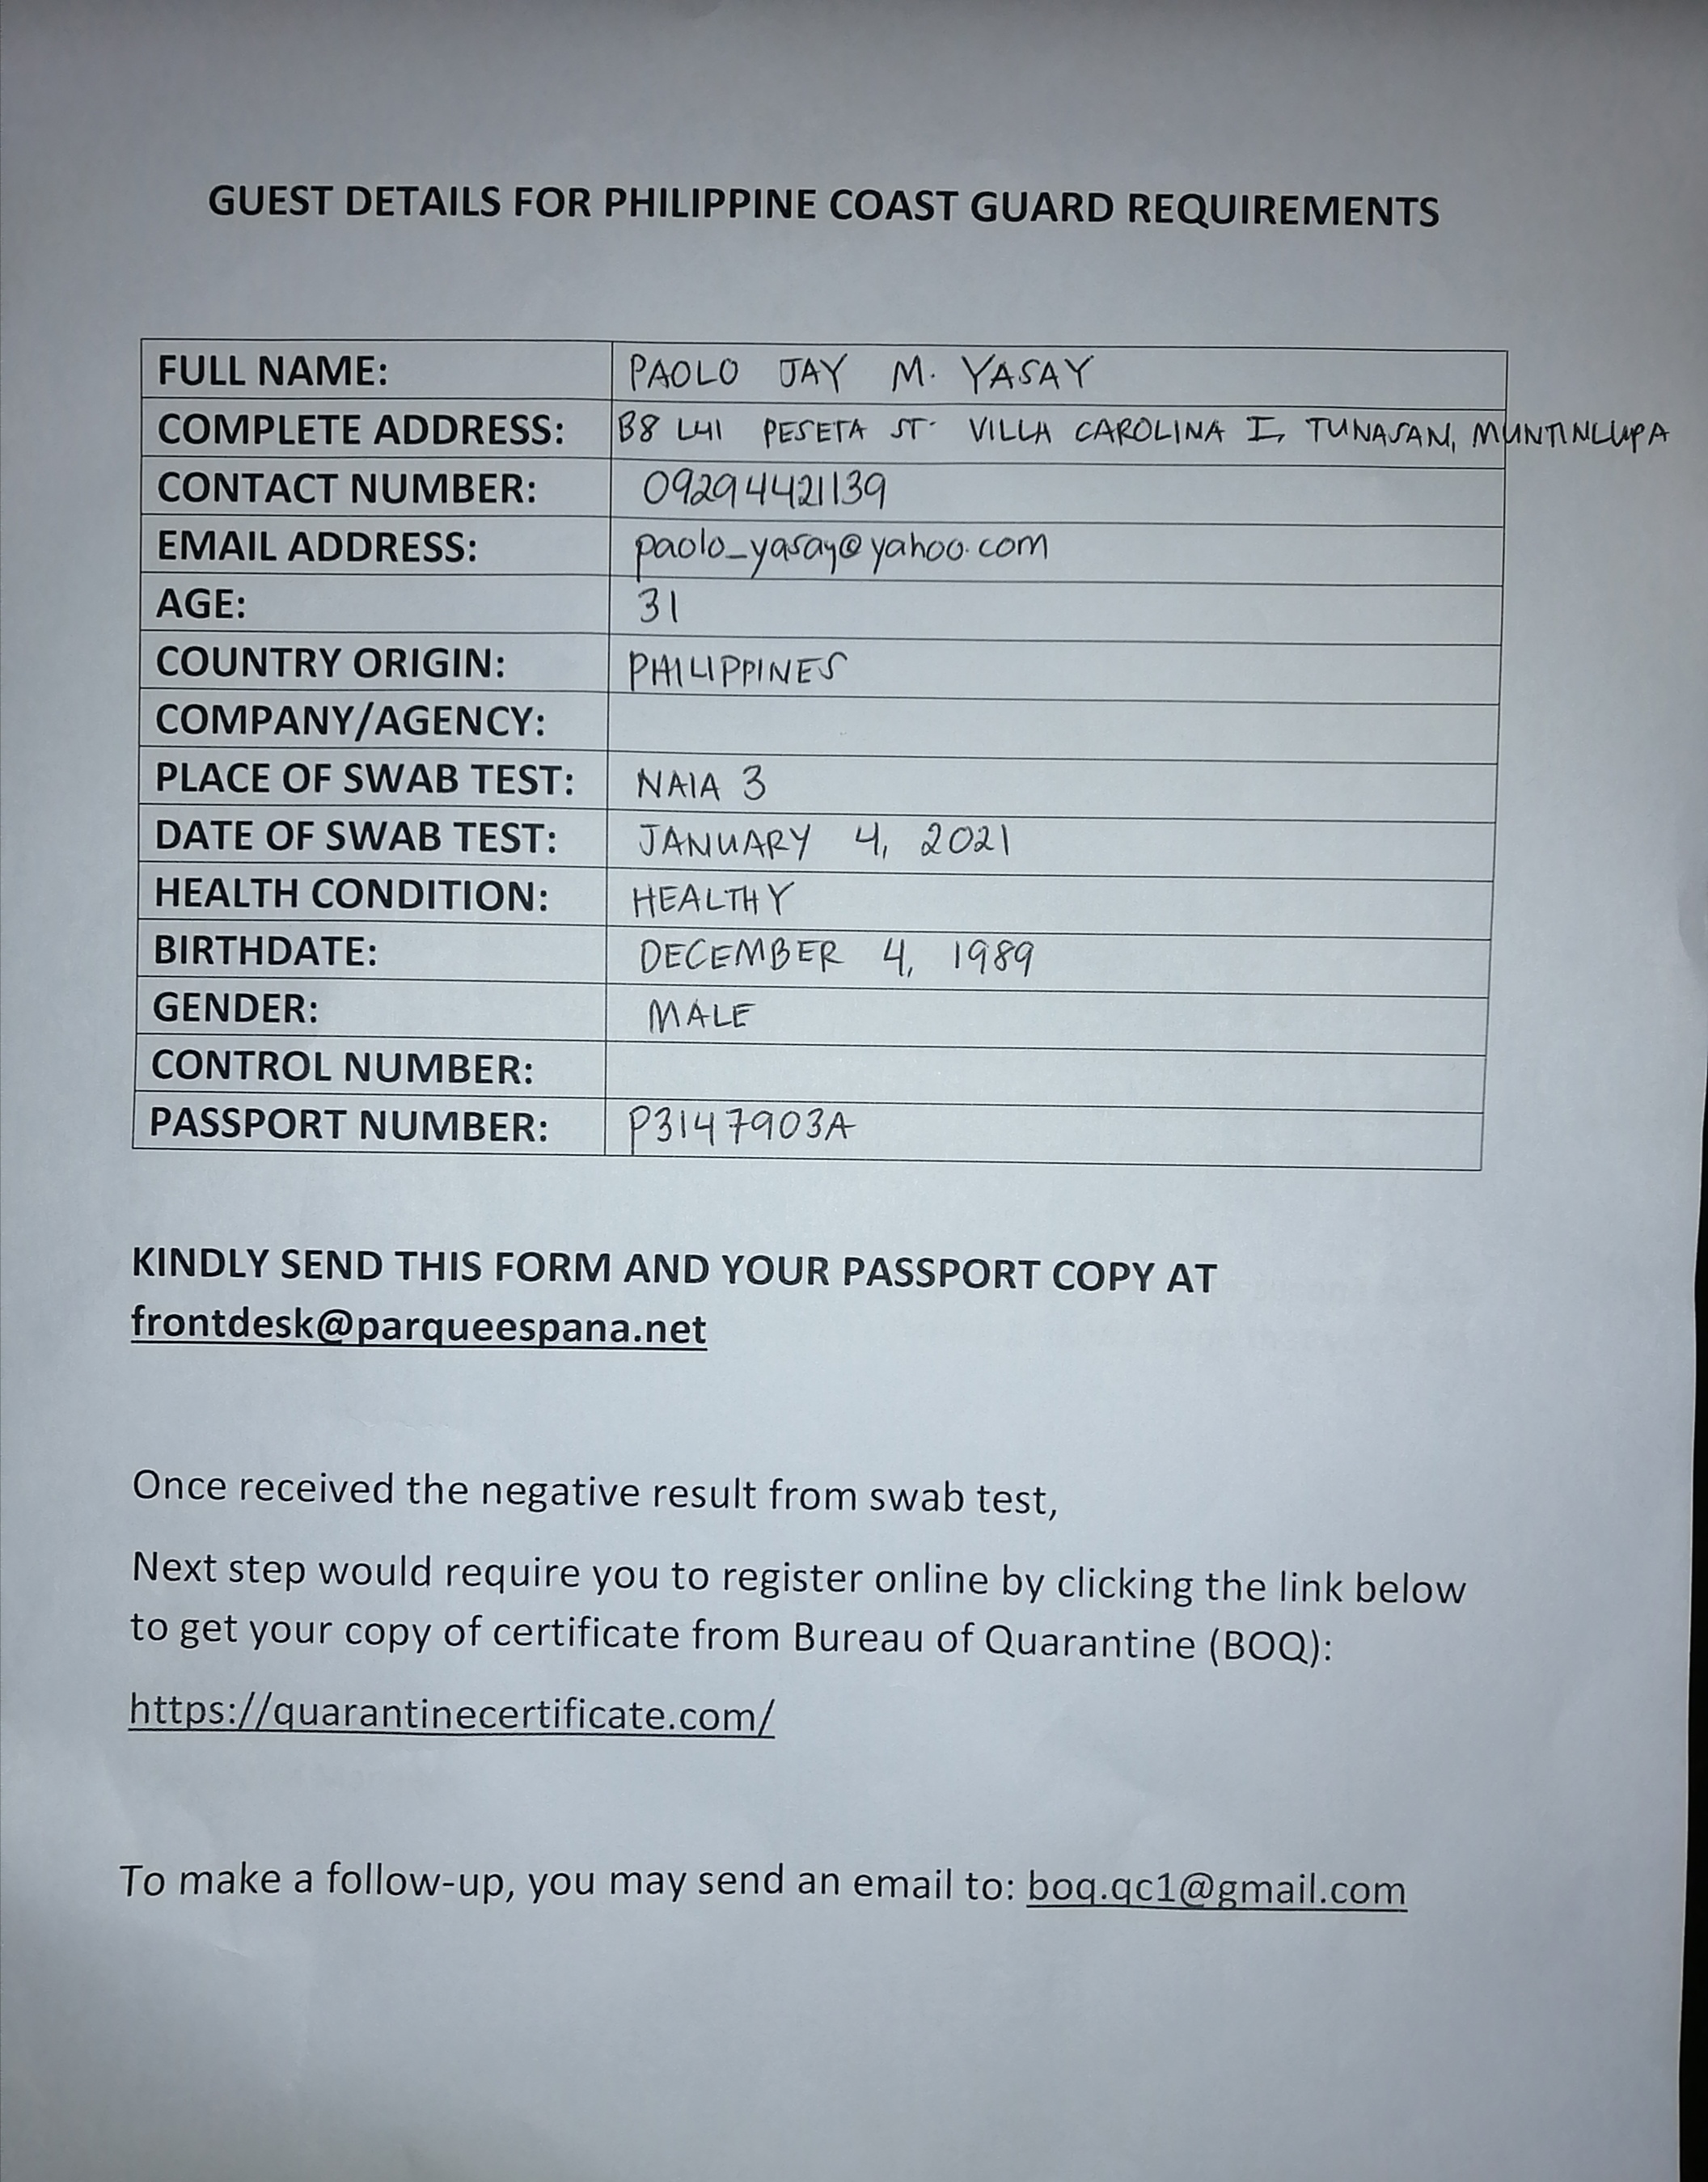 GUEST DETAILS FOR PHILIPPINE COAST GUARD REQUIREMENTS
FULL NAME: PAOLO JAY M. YASAY
COMPLETE ADDRESS: B8 L41 PESETA ST. VILLA CAROLINA I, TUNASAN, MUNTINLUPA
CONTACT NUMBER: 09294421139
EMAIL ADDRESS: paolo_yasay@yahoo.com
AGE: 31
COUNTRY ORIGIN: PHILIPPINES
COMPANY/AGENCY:
PLACE OF SWAB TEST: NAIA 3
DATE OF SWAB TEST: JANUARY 4, 2021
HEALTH CONDITION: HEALTHY
BIRTHDATE: DECEMBER 4, 1989
GENDER: MALE
CONTROL NUMBER:
PASSPORT NUMBER: P3147903A
KINDLY SEND THIS FORM AND YOUR PASSPORT COPY AT
frontdesk@parqueespana.net
Once received the negative result from swab test,
Next step would require you to register online by clicking the link below
to get your copy of certificate from Bureau of Quarantine (BOQ):
https://quarantinecertificate.com/
To make a follow-up, you may send an email to: boq.qc1@gmail.com